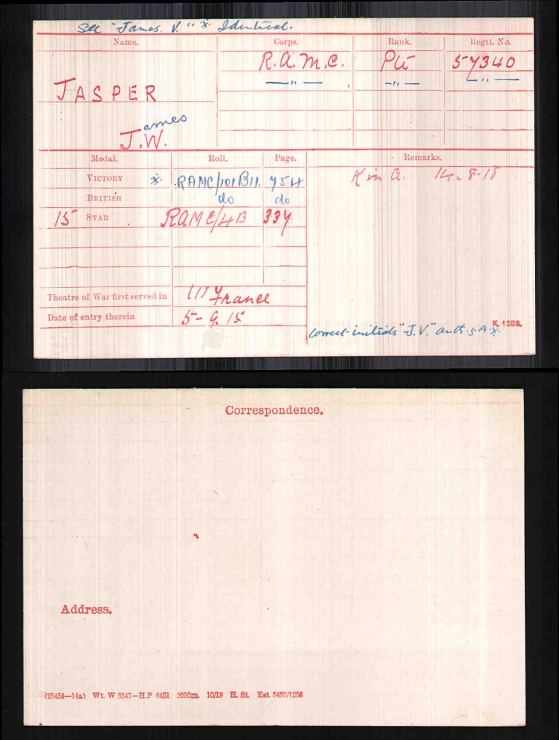 See "James V." * Identical.
Name. Corps. Rank. Regtl. No.
R.A.M.C. Pte 57340
JASPER —"— —"— —"—
James
J.W.
Medal. Roll. Page. Remarks.
VICTORY * RAMC/101B11. 754 K in A. 14-8-18
BRITISH do do
15 STAR RAMC/4B 334
Theatre of War first served in (1) France
Date of entry therein 5-9.15
Correct initials "J.V." auth. K. 1380.
Correspondence.
Address.
(25454—14a) Wt. W 3347—H.P 6451 2000m. 10/19 H. St. Est. 5480/1256